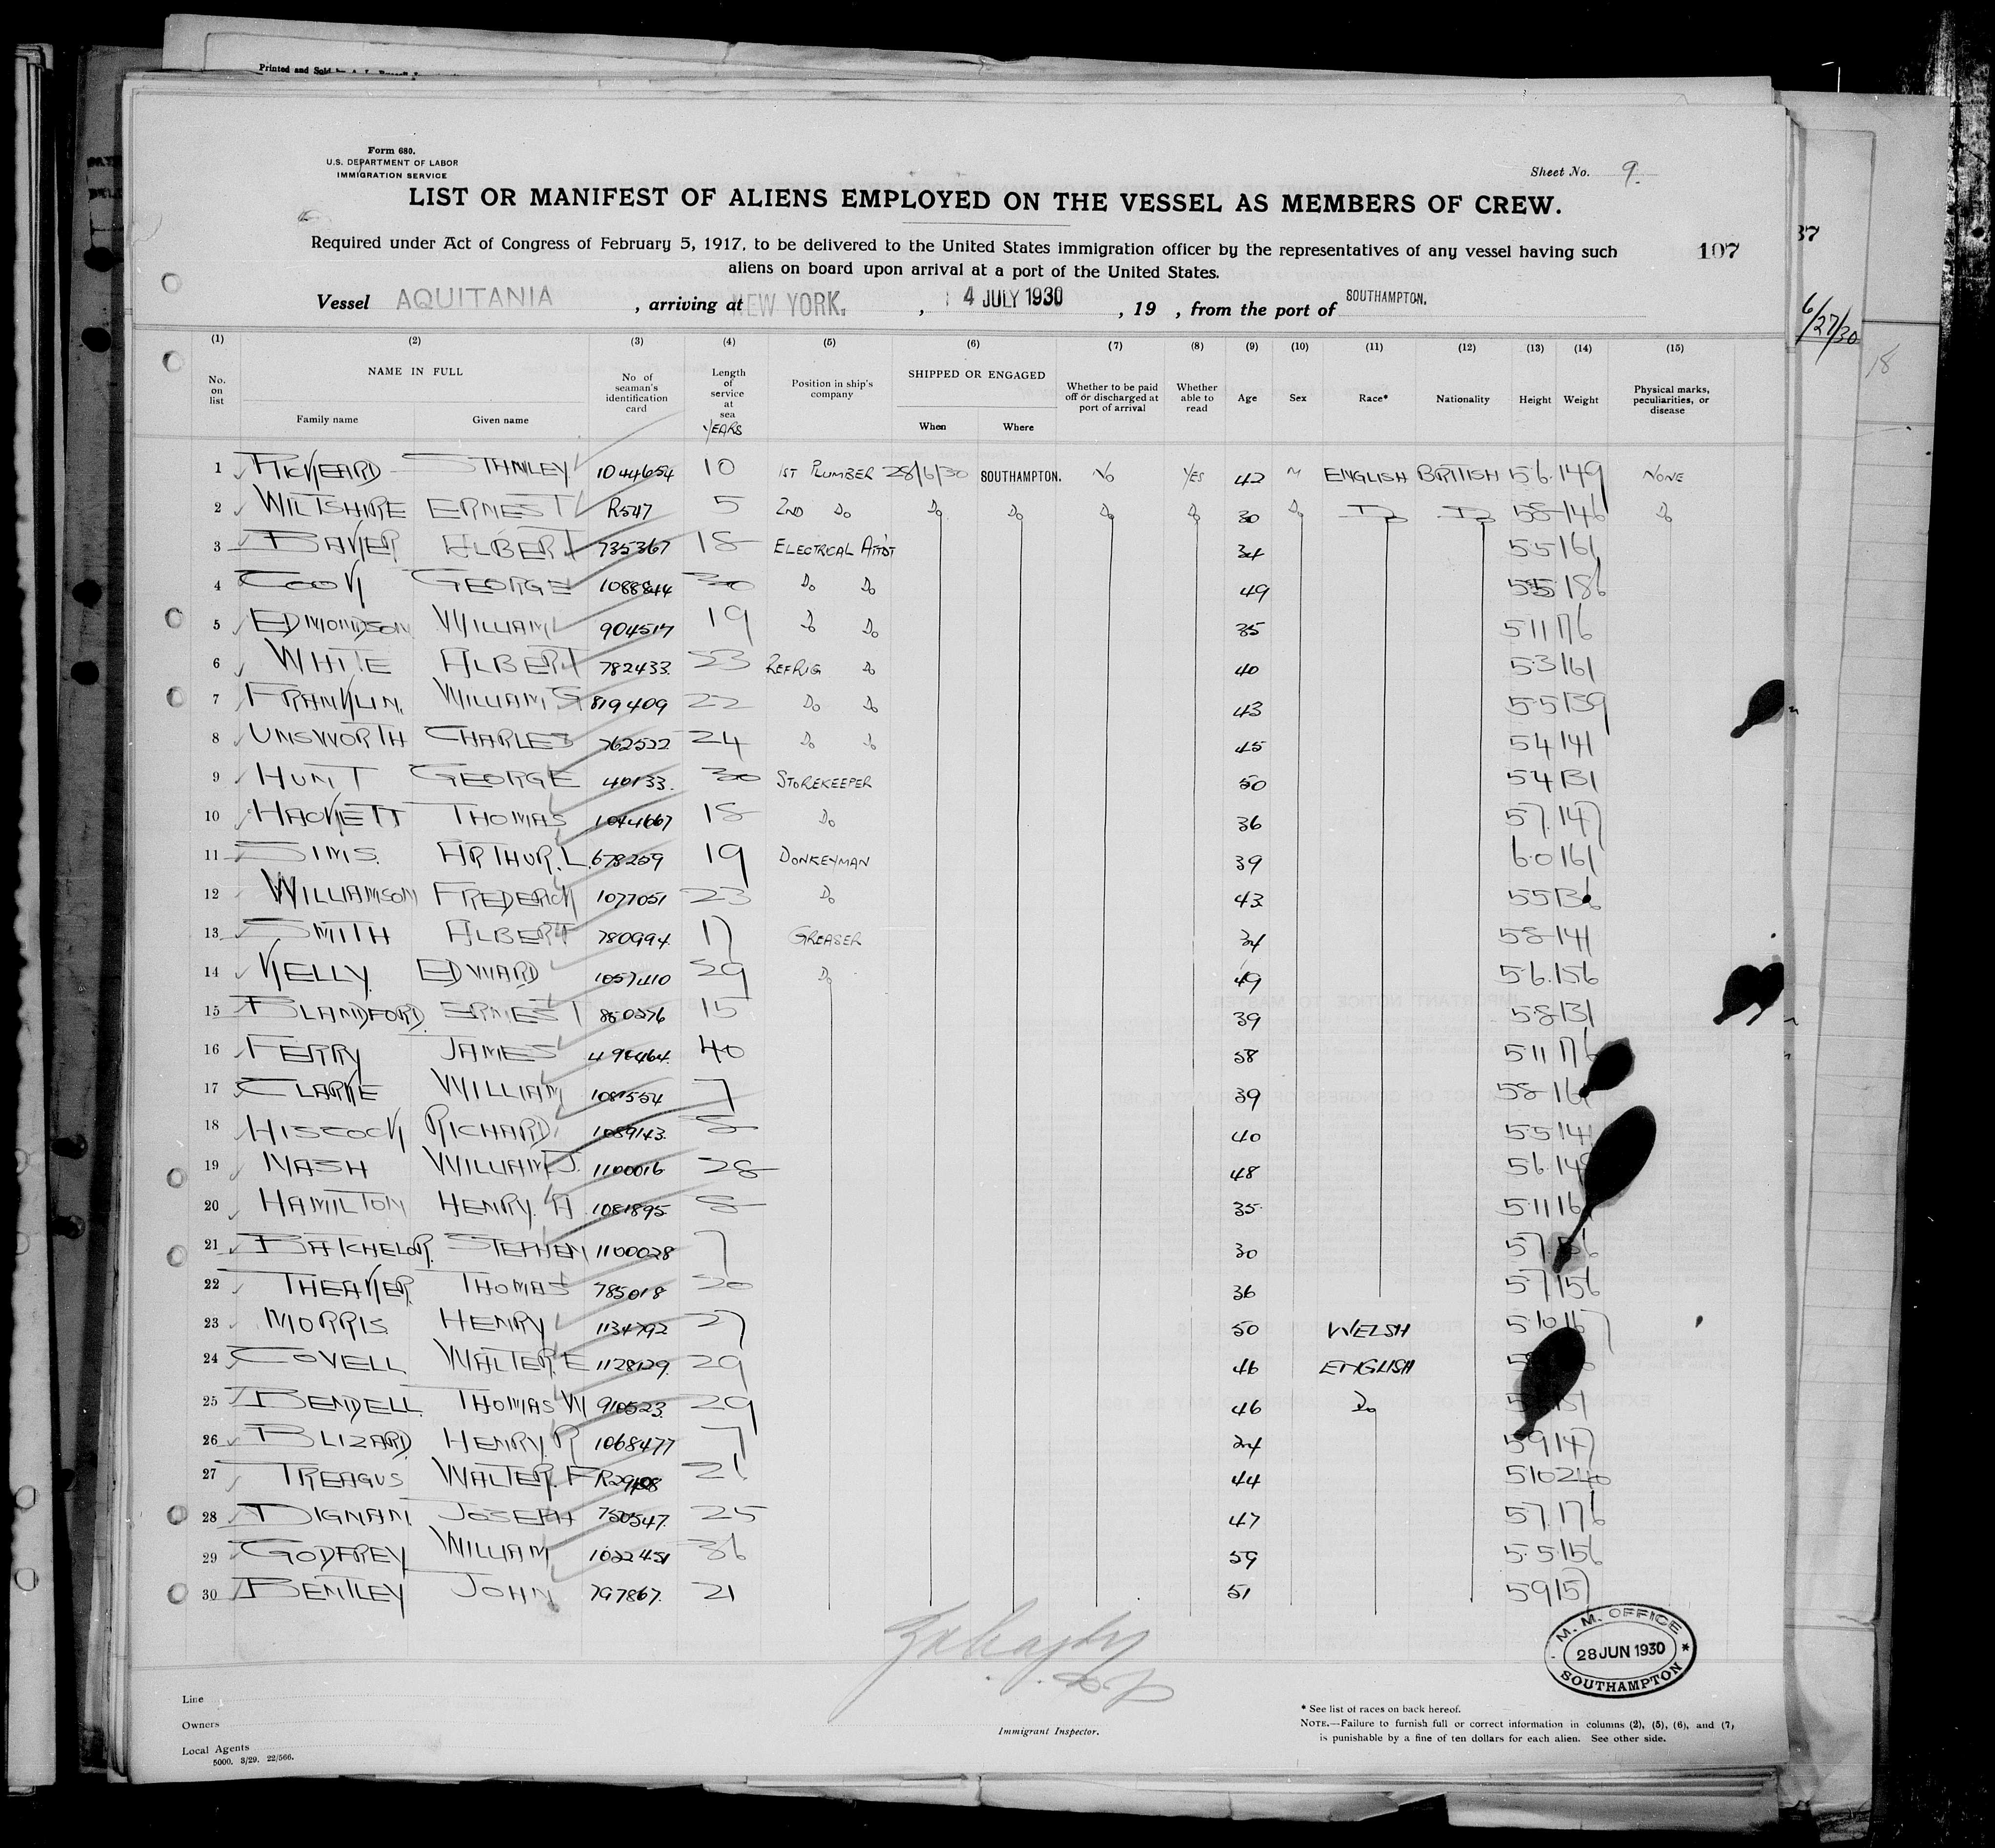 Printed and Sold by
Form 680.
U.S. DEPARTMENT OF LABOR
IMMIGRATION SERVICE
Sheet No. 9.
LIST OR MANIFEST OF ALIENS EMPLOYED ON THE VESSEL AS MEMBERS OF CREW.
Required under Act of Congress of February 5, 1917, to be delivered to the United States immigration officer by the representatives of any vessel having such
aliens on board upon arrival at a port of the United States.
107
37
Vessel AQUITANIA, arriving at NEW YORK., 4 JULY 1930, 19 , from the port of SOUTHAMPTON.
6/27/30
18
(1) (2) (3) (4) (5) (6) (7) (8) (9) (10) (11) (12) (13) (14) (15)
No. on list NAME IN FULL Family name Given name No of seaman's identification card Length of service at sea YEARS Position in ship's company SHIPPED OR ENGAGED When Where Whether to be paid off or discharged at port of arrival Whether able to read Age Sex Race* Nationality Height Weight Physical marks, peculiarities, or disease
1 RICKEARD STANLEY 1044654 10 1ST PLUMBER 28/6/30 SOUTHAMPTON. NO YES 42 M ENGLISH BRITISH 5.6. 149 NONE
2 WILTSHIRE ERNEST R547 5 2ND Do Do Do Do Do 30 Do Do Do 5 8 146 Do
3 BAKER ALBERT 735367 18 ELECTRICAL ATT'DT 34 5.5 161
4 COOK GEORGE 1088844 30 Do Do 49 5.5 186
5 EDMONDSON WILLIAM 904517 19 Do Do 35 5.11 176
6 WHITE ALBERT 782433. 23 REFRIG Do 40 5.3 161
7 FRANKLIN. WILLIAM G 819409 22 Do Do 43 5.5 139
8 UNSWORTH CHARLES 762522 24 Do Do 45 5 4 141
9 HUNT GEORGE 40133. 30 STOREKEEPER 50 5 4 131
10 HACKETT THOMAS 1044667 18 Do 36 5 7. 147
11 SIMS. ARTHUR. L. 678259 19 DONKEYMAN 39 6.0 161
12 WILLIAMSON FREDERICK 1077051 23 Do 43 5 5 136
13 SMITH ALBERT 780994 17 GREASER 34 5 8 141
14 KELLY. EDWARD 1057410 29 Do 49 5.6. 156
15 BLANDFORD. ERNEST 850276 15 39 5.8 131
16 FERRY JAMES 40 58 5.11 176
17 CLARKE WILLIAM 1081554 7 39 5 8 161
18 HISCOCK RICHARD. 1089143. 8 40 5.5 141
19 NASH WILLIAM J. 1100016 28 48 5 6.
20 HAMILTON HENRY. A 1081895 8 35. 5.11
21 BATCHELOR. STEPHEN 1100028 7 30 5 7.
22 THEAKER THOMAS 785018 20 36 5 7 156
23 MORRIS HENRY 1134792 27 50 WELSH 5.10 167
24 COVELL WALTER. E 1128129. 29 46 ENGLISH
25 BENDELL. THOMAS W 910523. 29 46 Do
26 BLIZARD. HENRY. R 1068477 7 24 5 9 147
27 TREAGUS WALTER. F 21 44 5 10 240
28 DIGNAM. JOSEPH 750547. 25 47 5 7. 176
29 GODFREY WILLIAM 1022451 36 59 5.5 156
30 BENTLEY JOHN 797867. 21 51 5 9 157
M. M. OFFICE
28 JUN 1930
SOUTHAMPTON
Line
Owners
Local Agents
5000. 3/29. 22/566.
Immigrant Inspector.
* See list of races on back hereof.
NOTE.—Failure to furnish full or correct information in columns (2), (5), (6), and (7),
is punishable by a fine of ten dollars for each alien. See other side.